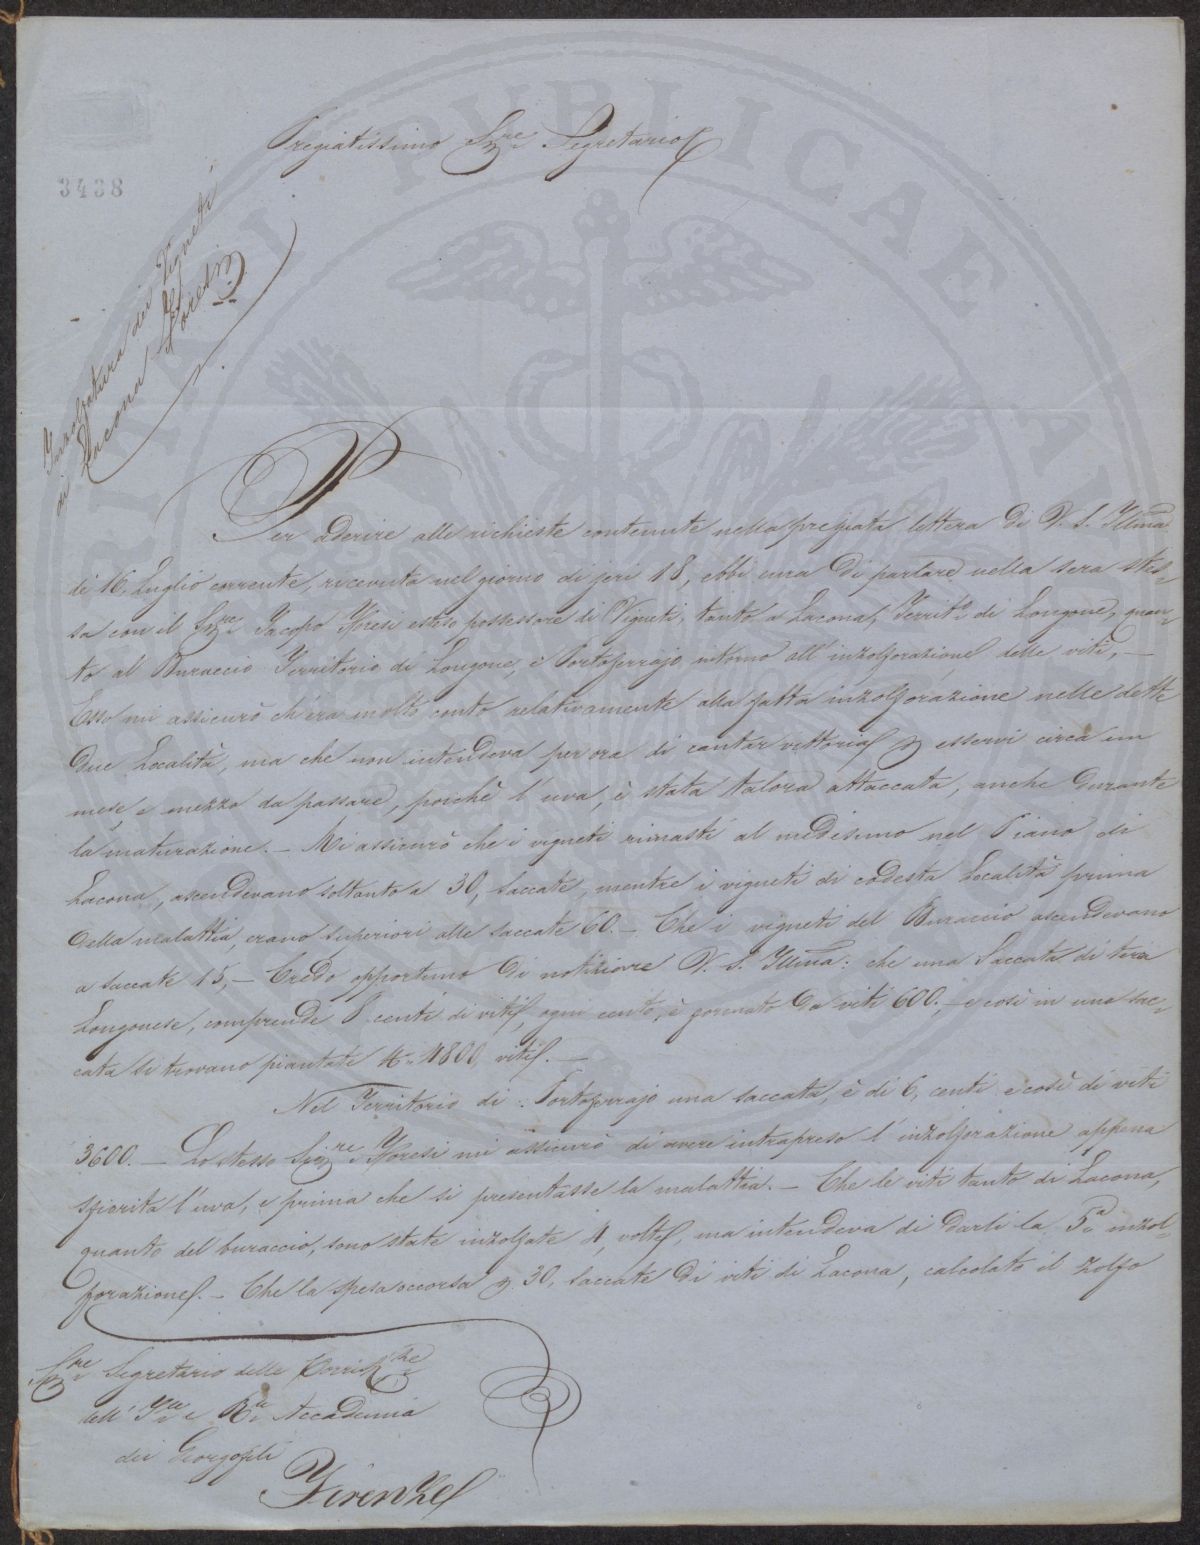 Pregiatissimo Sigre Segretario
3438
Inzolfatura dei Vigneti
di Lacona Foresi
Per aderire alle richieste contenute nella pregiata lettera di V. S. Illma
de' 16, Luglio corrente, ricevuta nel giorno di jeri 18, ebbi una di parlare nella sera stes-
sa con il Sigre Jacopo Foresi esteso possessore di Vigneti, tanto a Lacona, Territo di Longone, quan-
to al Buraccio Territorio di Longone, e Portoferrajo, intorno all'inzolforazione delle viti, —
Esso mi assicurò ch'era molto contento relativamente alla fatta inzolforazione nelle dette
due Località, ma che non intendeva per ora di cantar vittoria p esservi circa un
mese e mezzo da passare, poichè l'uva, è stata talora attaccata, anche durante
la maturazione. — Mi assicurò che i vigneti rimasti al medesimo nel Piano di
Lacona, ascendevano soltanto a 30, saccate, mentre i vigneti di codesta Località prima
della malattia, erano superiori alle saccate 60. — Che i vigneti del Buraccio ascendevano
a saccate 15, — Credo opportuno di notiziare V. S. Illma: che una Saccata di terra
Longonese, comprende 8 centi di viti, ogni cento, è formato da viti 600; — e così in una sac-
cata si trovano piantate N. 4800, viti. —
Nel Territorio di Portoferrajo una saccata, è di 6, centi e così di viti
3600. — Lo stesso Sigre Foresi mi assicurò di avere intrapreso l'inzolforazione appena
sfiorita l'uva, e prima che si presentasse la malattia. — Che le viti tanto di Lacona,
quanto del buraccio, sono state inzolfate 4, volte, ma intendeva di darli la 5a inzol-
forazione. — Che la spesa occorsa p 30, saccate di viti di Lacona, calcolato il zolfo
Sigre Segretario delle Corrisp
dell' I e R Accademia
dei Georgofili
Firenze
ITAT PVBLICAE AVG